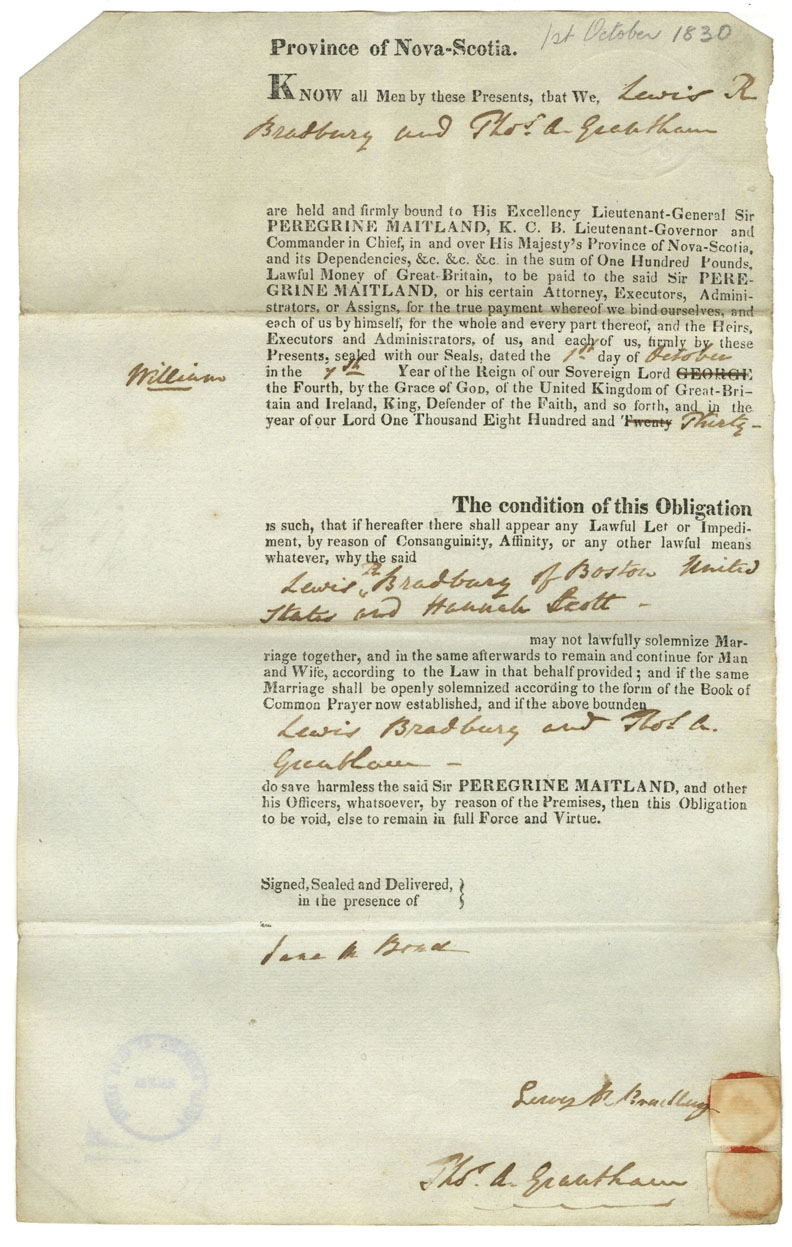 1st October 1830
Province of Nova-Scotia.
KNOW all Men by these Presents, that We, Lewis R
Bradbury and Thos. A. Grantham
are held and firmly bound to His Excellency Lieutenant-General Sir
PEREGRINE MAITLAND, K. C. B. Lieutenant-Governor and
Commander in Chief, in and over His Majesty's Province of Nova-Scotia,
and its Dependencies, &c. &c. &c. in the sum of One Hundred Pounds,
Lawful Money of Great-Britain, to be paid to the said Sir PERE-
GRINE MAITLAND, or his certain Attorney, Executors, Admini-
strators, or Assigns, for the true payment whereof we bind ourselves, and
each of us by himself, for the whole and every part thereof, and the Heirs,
Executors and Administrators, of us, and each of us, firmly by these
Presents, sealed with our Seals, dated the 1st day of October
William
in the 7th Year of the Reign of our Sovereign Lord GEORGE
the Fourth, by the Grace of GOD, of the United Kingdom of Great-Bri-
tain and Ireland, King, Defender of the Faith, and so forth, and in the
year of our Lord One Thousand Eight Hundred and Twenty Thirty -
The condition of this Obligation
is such, that if hereafter there shall appear any Lawful Let or Impedi-
ment, by reason of Consanguinity, Affinity, or any other lawful means
whatever, why the said
Lewis R Bradbury of Boston United
States and Hannah Scott -
may not lawfully solemnize Mar-
riage together, and in the same afterwards to remain and continue for Man
and Wife, according to the Law in that behalf provided; and if the same
Marriage shall be openly solemnized according to the form of the Book of
Common Prayer now established, and if the above bounden
Lewis Bradbury and Thos A.
Grantham -
do save harmless the said Sir PEREGRINE MAITLAND, and other
his Officers, whatsoever, by reason of the Premises, then this Obligation
to be void, else to remain in full Force and Virtue.
Signed, Sealed and Delivered,
in the presence of
Lewis R Bradbury
Thos. A. Grantham